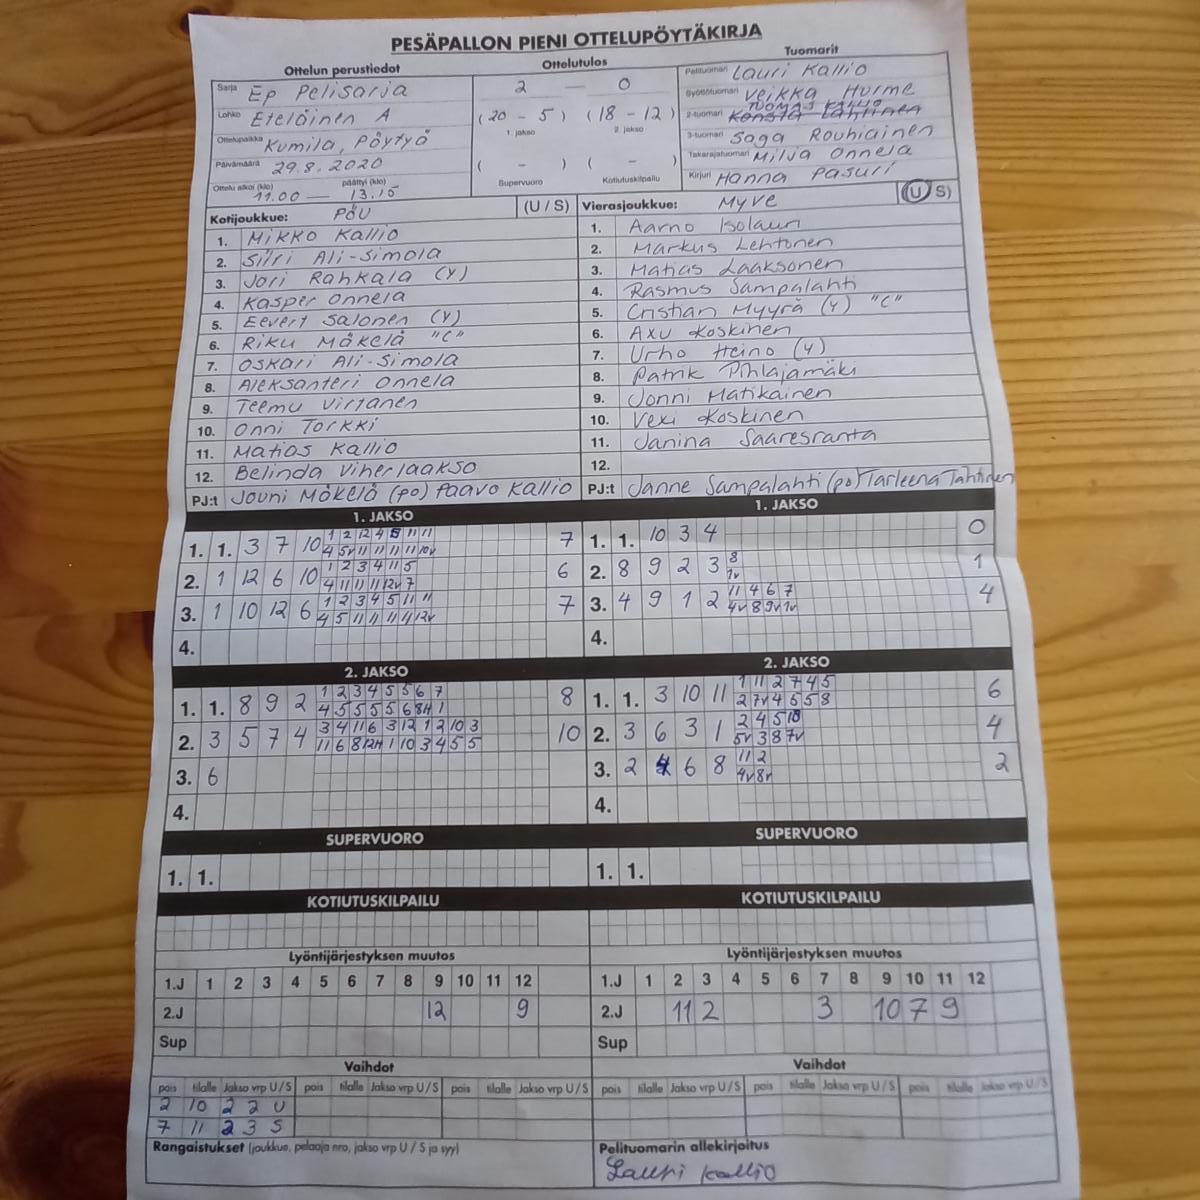 PESÄPALLON PIENI OTTELUPÖYTÄKIRJA
Ottelun perustiedot Ottelutulos Tuomarit
Sarja Ep Pelisarja 2 — 0 Pelituomari Lauri Kallio
Lohko Eteläinen A (20 - 5) (18 - 12) Syöttötuomari Veikka Hurme
1. jakso 2. jakso 2-tuomari TUOMAS KALLIO
Ottelupaikka Kumila, Pöytyä 3-tuomari Saga Rouhiainen
Päivämäärä 29.8.2020 ( - ) ( - ) Takarajatuomari Milja Onnela
Ottelu alkoi (klo) päättyi (klo) Supervuoro Kotiutuskilpailu Kirjuri Hanna Pasuri
11.00 — 13.15
Kotijoukkue: PöU (U / S) Vierasjoukkue: MyVe (U / S)
1. Mikko Kallio 1. Aarno Isolauri
2. Siiri Ali-Simola 2. Markus Lehtonen
3. Jori Rahkala (Y) 3. Matias Laaksonen
4. Kasper Onnela 4. Rasmus Sampalahti
5. Eevert Salonen (Y) 5. Cristian Myyrä (Y) "C"
6. Riku Mäkelä "C" 6. Axu Koskinen
7. Oskari Ali-Simola 7. Urho Heino (Y)
8. Aleksanteri Onnela 8. Patrik Pihlajamäki
9. Teemu Virtanen 9. Jonni Matikainen
10. Onni Torkki 10. Vexi Koskinen
11. Matias Kallio 11. Janina Saaresranta
12. Belinda Viherlaakso 12.
PJ:t Jouni Mäkelä (po) Paavo Kallio PJ:t Janne Sampalahti (po) Tarleena Tahtinen
1. JAKSO 1. JAKSO
1. 1. 3 7 10 1 2 12 4 5 11 11 7 1. 1. 10 3 4 0
4 5v 11 11 11 11 10v
2. 1 12 6 10 1 2 3 4 11 5 6 2. 8 9 2 3 8 1
4 11 11 11 12v 7 1v
3. 1 10 12 6 1 2 3 4 5 11 11 7 3. 4 9 1 2 11 4 6 7 4
4 5 11 11 11 11 12v 4v 8 9v 1v
4. 4.
2. JAKSO 2. JAKSO
1. 1. 8 9 2 1 2 3 4 5 5 6 7 8 1. 1. 3 10 11 1 11 2 7 4 5 6
4 5 5 5 5 6 8H 1 2 7v 4 5 5 8
2. 3 5 7 4 3 4 11 6 3 12 1 2 10 3 10 2. 3 6 3 1 2 4 5 10 4
11 6 8 12H 1 10 3 4 5 5 5v 3 8 7v
3. 6 3. 2 4 6 8 11 2 2
4v 8v
4. 4.
SUPERVUORO SUPERVUORO
1. 1. 1. 1.
KOTIUTUSKILPAILU KOTIUTUSKILPAILU
Lyöntijärjestyksen muutos Lyöntijärjestyksen muutos
1.J 1 2 3 4 5 6 7 8 9 10 11 12 1.J 1 2 3 4 5 6 7 8 9 10 11 12
2.J 12 9 2.J 11 2 3 10 7 9
Sup Sup
Vaihdot Vaihdot
pois tilalle Jakso vrp U/S pois tilalle Jakso vrp U/S pois tilalle Jakso vrp U/S pois tilalle Jakso vrp U/S pois tilalle Jakso vrp U/S pois tilalle Jakso vrp U/S
2 10 2 2 U
7 11 2 3 S
Rangaistukset (joukkue, pelaaja nro, jakso vrp U / S ja syy) Pelituomarin allekirjoitus
Lauri Kallio